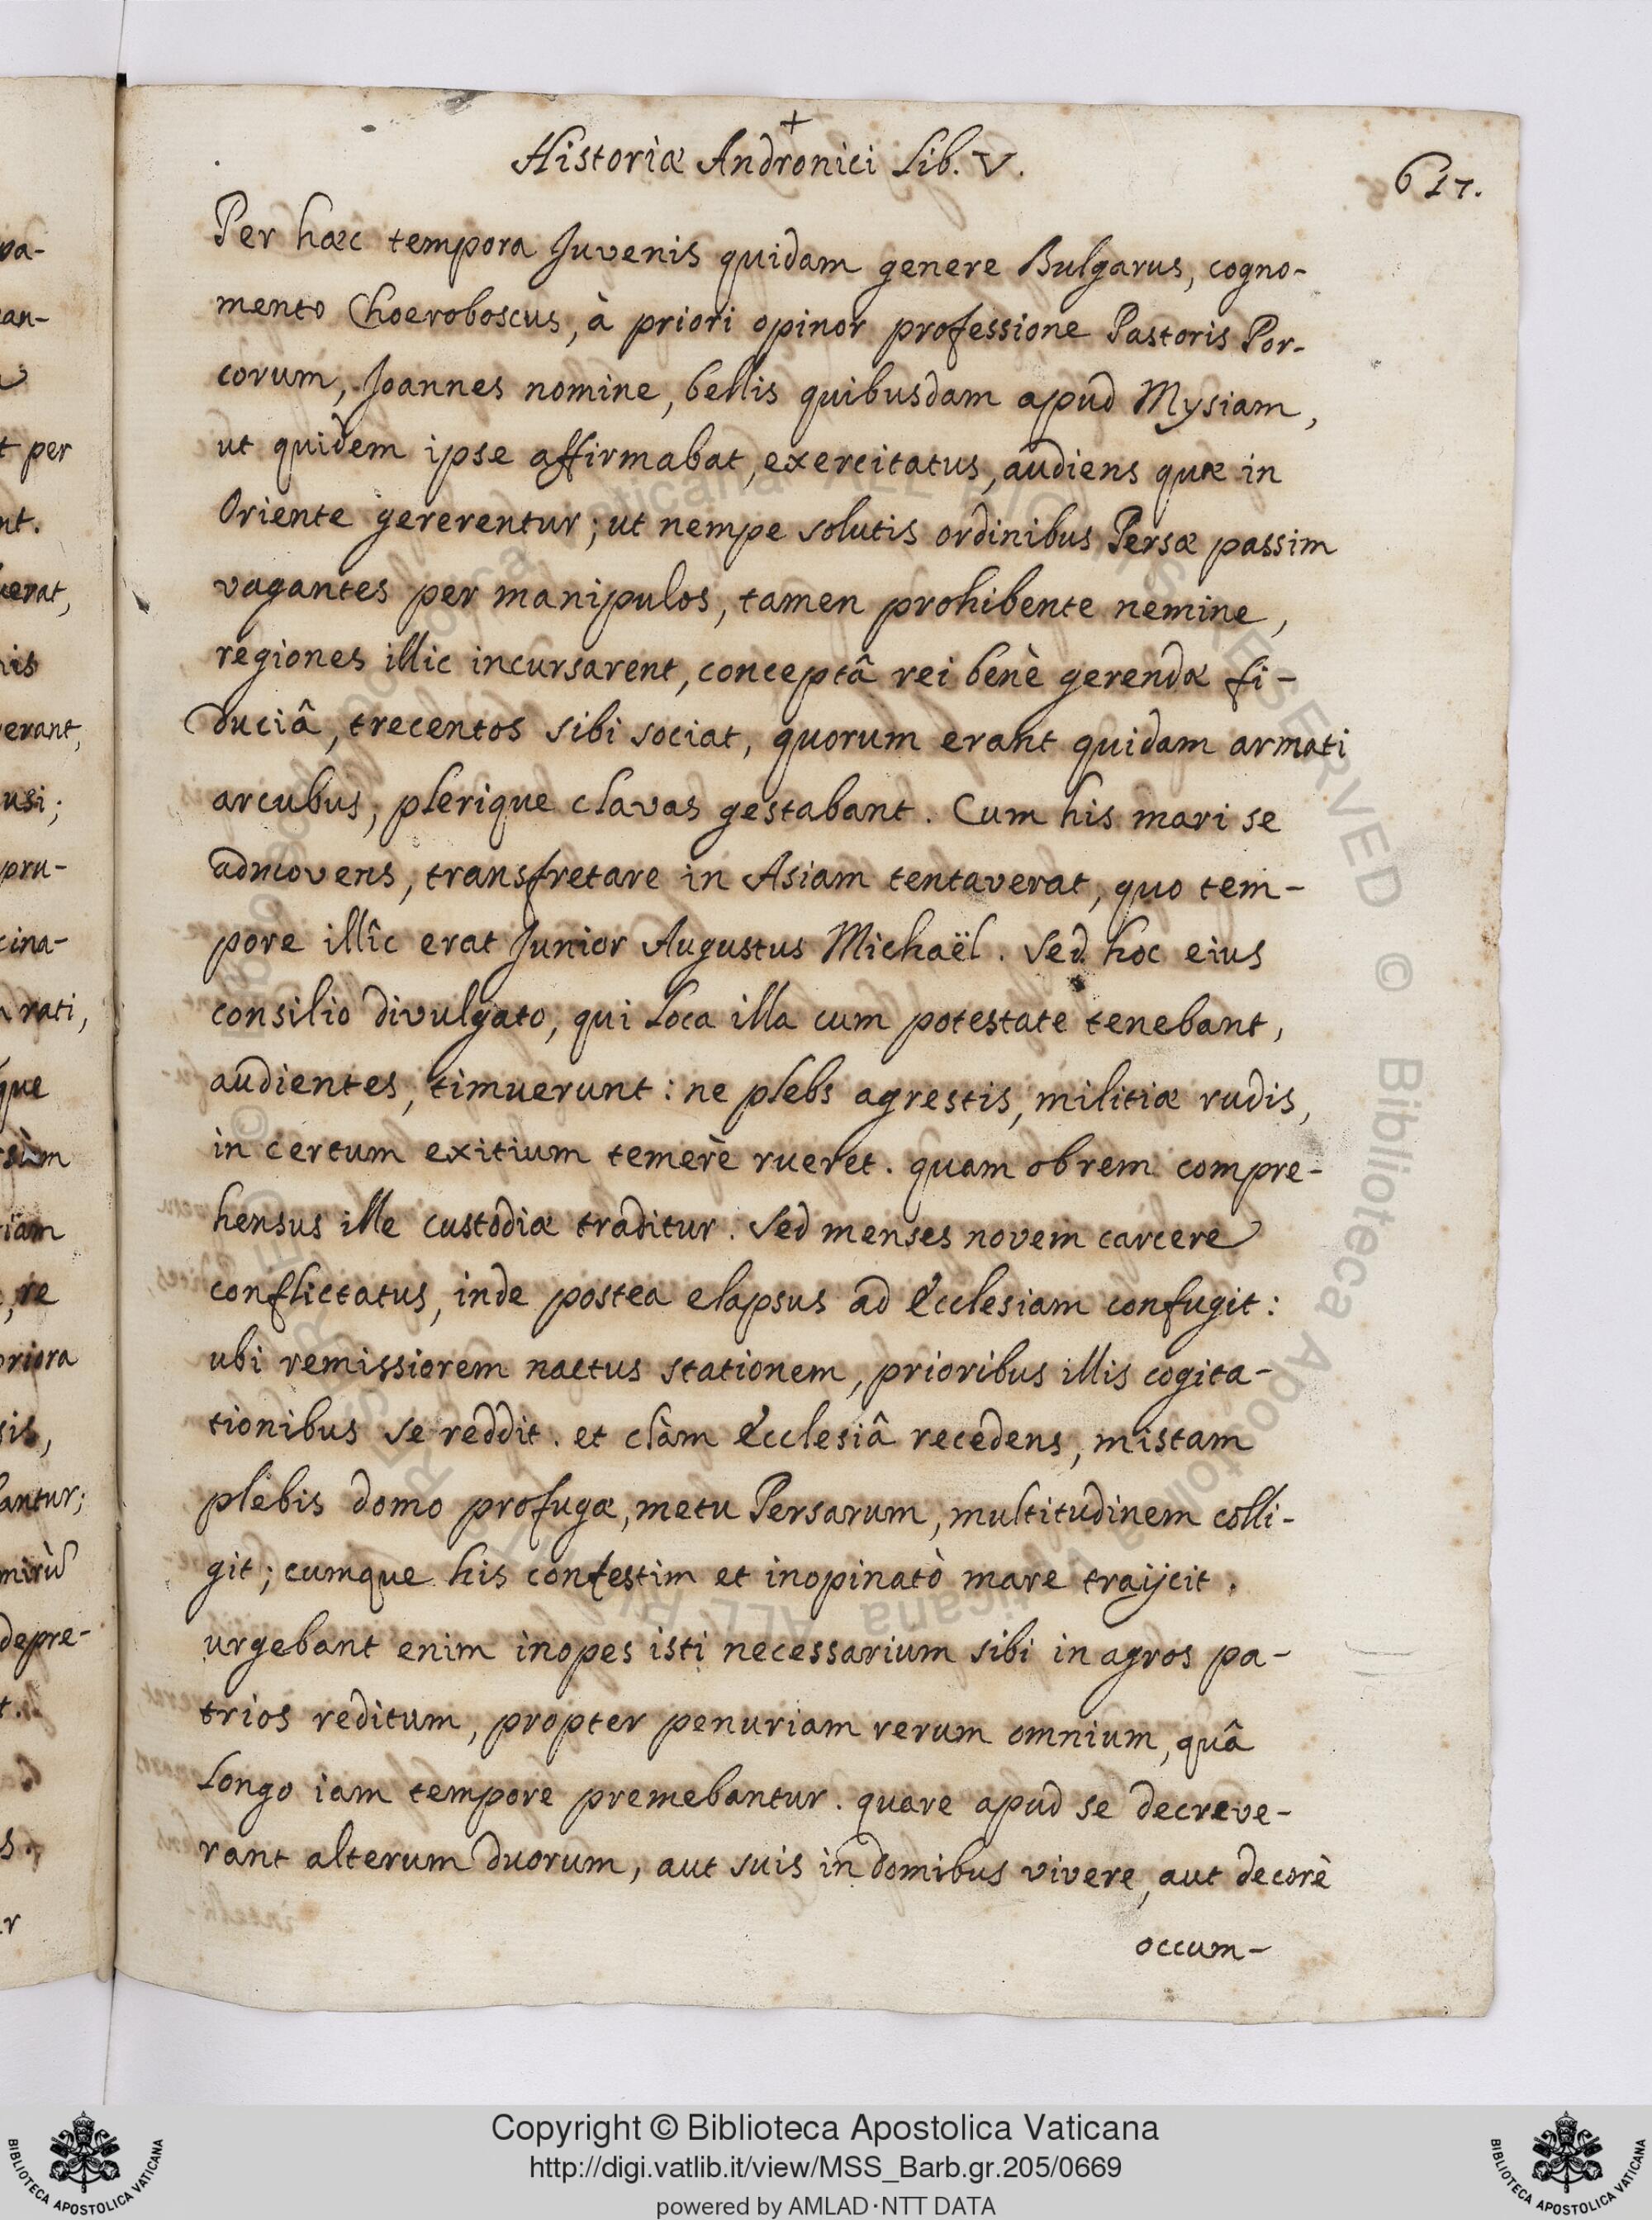 +
Historiæ Andronici Lib. V.
617.
Per hæc tempora Juvenis quidam genere Bulgarus, cogno-
mento Choeroboscus, à priori opinor professione Pastoris Por-
corum, Joannes nomine, bellis quibusdam apud Mysiam,
ut quidem ipse affirmabat, exercitatus, audiens quæ in
Oriente gererentur; ut nempe solutis ordinibus Persæ passim
vagantes per manipulos, tamen prohibente nemine,
regiones illic incursarent, conceptâ rei benè gerendæ fi-
duciâ, trecentos sibi sociat, quorum erant quidam armati
arcubus, plerique clavas gestabant. Cum his mari se
admovens, transfretare in Asiam tentaverat, quo tem-
pore illîc erat Junior Augustus Michaël. Sed hoc eius
consilio divulgato, qui Loca illa cum potestate tenebant,
audientes, timuerunt: ne plebs agrestis, militiæ rudis,
in certum exitium temerè rueret. quam obrem compre-
hensus ille custodiæ traditur. Sed menses novem carcere
conflictatus, inde postea elapsus ad Ecclesiam confugit:
ubi remissiorem nactus stationem, prioribus illis cogita-
tionibus se reddit. et clàm Ecclesiâ recedens, mistam
plebis domo profugæ, metu Persarum, multitudinem colli-
git; cumque his confestim et inopinatò mare traijcit.
urgebant enim inopes isti necessarium sibi in agros pa-
trios reditum, propter penuriam rerum omnium, quâ
Longo iam tempore premebantur. quare apud se decreve-
rant alterum duorum, aut suis in domibus vivere, aut decorè
occum-
va-
t per
nt.
erant,
usi;
pru-
cina-
rati,
que
re
priora
sis,
antur;
depre-
Copyright © Biblioteca Apostolica Vaticana
http://digi.vatlib.it/view/MSS_Barb.gr.205/0669
powered by AMLAD·NTT DATA
BIBLIOTECA APOSTOLICA VATICANA
BIBLIOTECA APOSTOLICA VATICANA